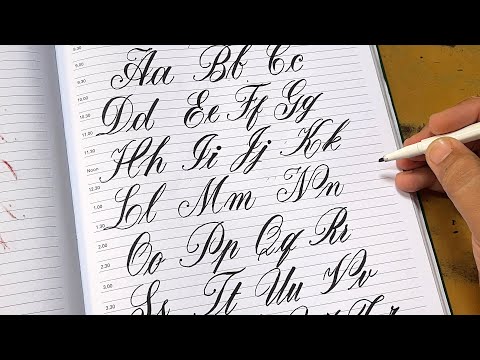 Aa Bb Cc
10.00
Dd Ee Ff Gg
10.30
11.00
11.30
Hh Ii Jj Kk
Noon
12.30
Ll Mm Nn
1.00
1.30
2.00
Oo Pp Qq Rr
3.00
3.30
Ss Tt Uu Vv